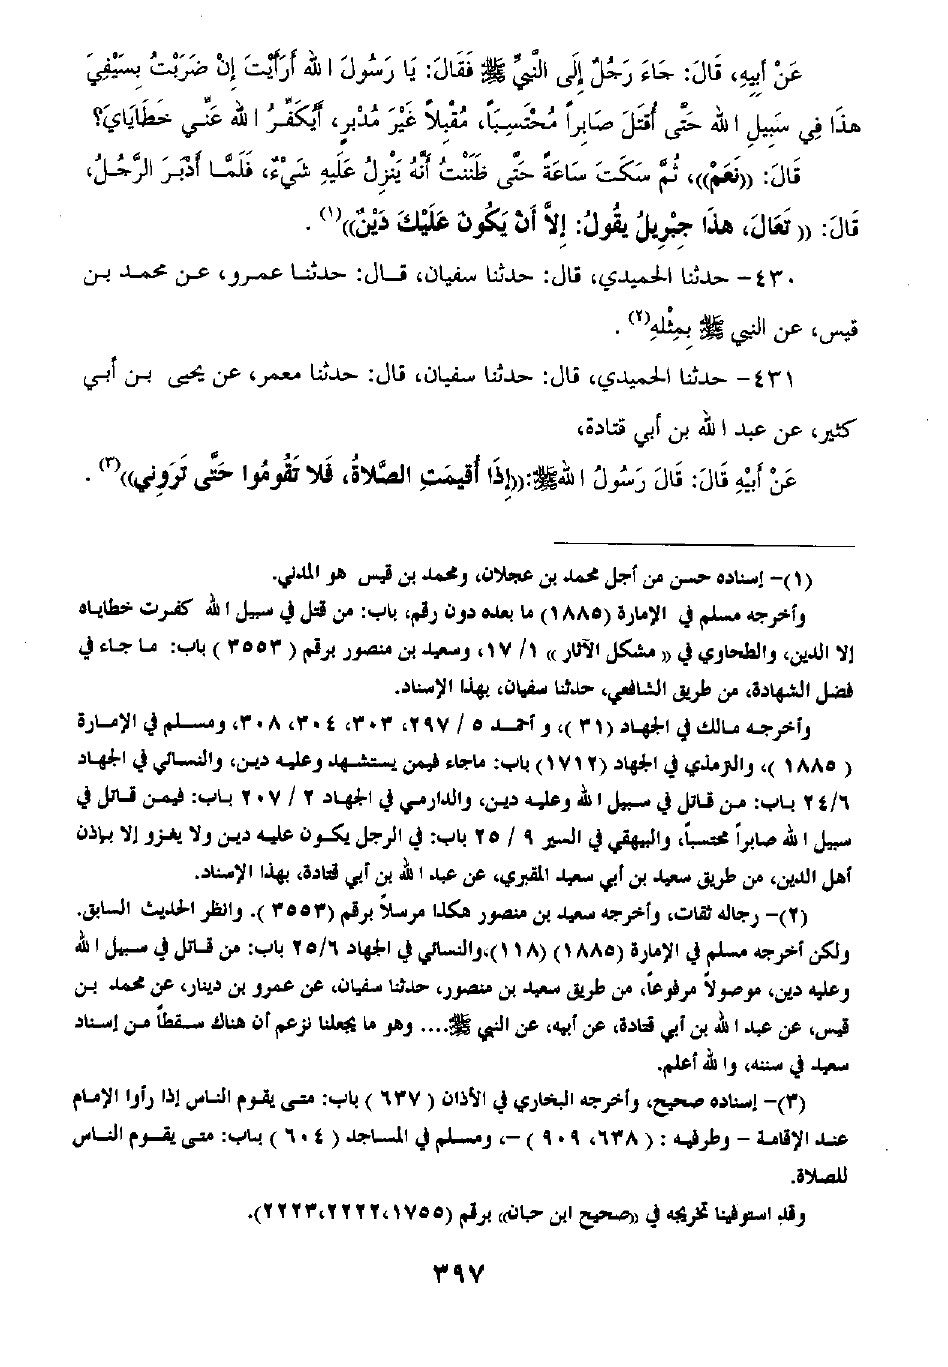 عَنْ أبِيهِ، قَالَ: جَاءَ رَجُلٌ إلَى النَّبِيِّ ﷺ فَقَالَ: يَا رَسُولَ الله أرَأَيْتَ إنْ ضَرَبْتُ بِسَيْفِيَ
هذَا فِي سَبِيلِ الله حَتَّى أُقْتَلَ صَابِراً مُحْتَسِبَاً، مُقْبِلاً غَيْرَ مُدْبِرٍ، أَيُكَفِّرُ الله عَنِّي خَطَايَايَ؟
قَالَ: ((نَعَمْ))، ثُمَّ سَكَتَ سَاعَةً حَتَّى ظَنَنْتُ أنَّهُ يَنْزِلُ عَلَيهِ شَيْءٌ، فَلَمَّا أَدْبَرَ الرَّجُلُ،
قَالَ: (( تَعَالَ، هذَا جِبْرِيلُ يقُولُ: إلاَّ أنْ يَكُونَ عَلَيْكَ دَيْنٌ))(١) .
٤٣٠- حدثنا الحميدي، قال: حدثنا سفيان، قال: حدثنا عمرو، عن محمد بن
قيس، عن النبي ﷺ بِمِثْلِهِ(٢) .
٤٣١- حدثنا الحميدي، قال: حدثنا سفيان، قال: حدثنا معمر، عن يحيى بن أبي
كثير، عن عبد الله بن أبي قتادة،
عَنْ أَبِيْهِ قَالَ: قَالَ رَسُولُ اللهﷺ:((إِذَا أُقِيمَتِ الصَّلاةُ، فَلا تَقُومُوا حَتَّى تَرَوني))(٣) .
(١)- إسناده حسن من أجل محمد بن عجلان، ومحمد بن قيس هو المدني.
وأخرجه مسلم في الإمارة (١٨٨٥) ما بعده دون رقم، باب: من قتل في سبيل الله كفرت خطاياه
إلا الدين، والطحاوي في (( مشكل الآثار )) ١/ ١٧، وسعيد بن منصور برقم ( ٣٥٥٣ ) باب: ما جاء في
فضل الشهادة، من طريق الشافعي، حدثنا سفيان، بهذا الإسناد.
وأخرجه مالك في الجهاد (٣١ )، و أحمد ٥ / ٢٩٧، ٣٠٣، ٣٠٤، ٣٠٨، ومسلم في الإمارة
( ١٨٨٥ )، والترمذي في الجهاد (١٧١٢) باب: ماجاء فيمن يستشهد وعليه دين، والنسائي في الجهاد
٢٤/٦ باب: من قاتل في سبيل الله وعليه دين، والدارمي في الجهاد ٢ / ٢٠٧ باب: فيمن قاتل في
سبيل الله صابراً محتسباً، والبيهقي في السير ٩ / ٢٥ باب: في الرجل يكون عليه دين ولا يغزو إلا بإذن
أهل الدين، من طريق سعيد بن أبي سعيد المقبري، عن عبد الله بن أبي قتادة، بهذا الإسناد.
(٢)- رجاله ثقات، وأخرجه سعيد بن منصور هكذا مرسلاً برقم (٣٥٥٣ ). وانظر الحديث السابق.
ولكن أخرجه مسلم في الإمارة (١٨٨٥) (١١٨)،والنسائي في الجهاد ٢٥/٦ باب: من قاتل في سبيل الله
وعليه دين، موصولاً مرفوعاً، من طريق سعيد بن منصور، حدثنا سفيان، عن عمرو بن دينار، عن محمد بن
قيس، عن عبد الله بن أبي قتادة، عن أبيه، عن النبي ﷺ.... وهو ما يجعلنا نزعم أن هناك سقطاً من إسناد
سعيد في سننه، والله أعلم.
(٣)- إسناده صحيح، وأخرجه البخاري في الأذان ( ٦٣٧ ) باب: متى يقوم الناس إذا رأوا الإمام
عند الإقامة - وطرفيه : ( ٦٣٨، ٩٠٩ ) -، ومسلم في المساجد ( ٦٠٤ ) باب: متى يقوم الناس
للصلاة.
وقد استوفينا تخريجه في ((صحيح ابن حبان)) برقم (١٧٥٥،٢٢٢٢،٢٢٢٣).
٣٩٧